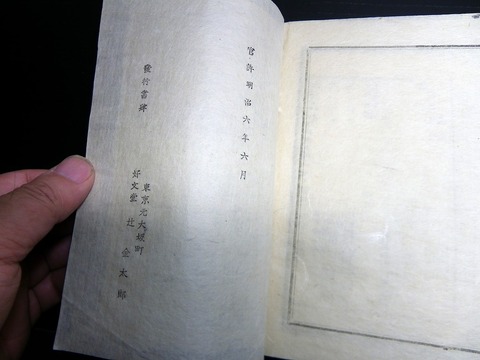 官許明治六年六月
發行書肆
東京元大坂町
好文堂 辻金太郎